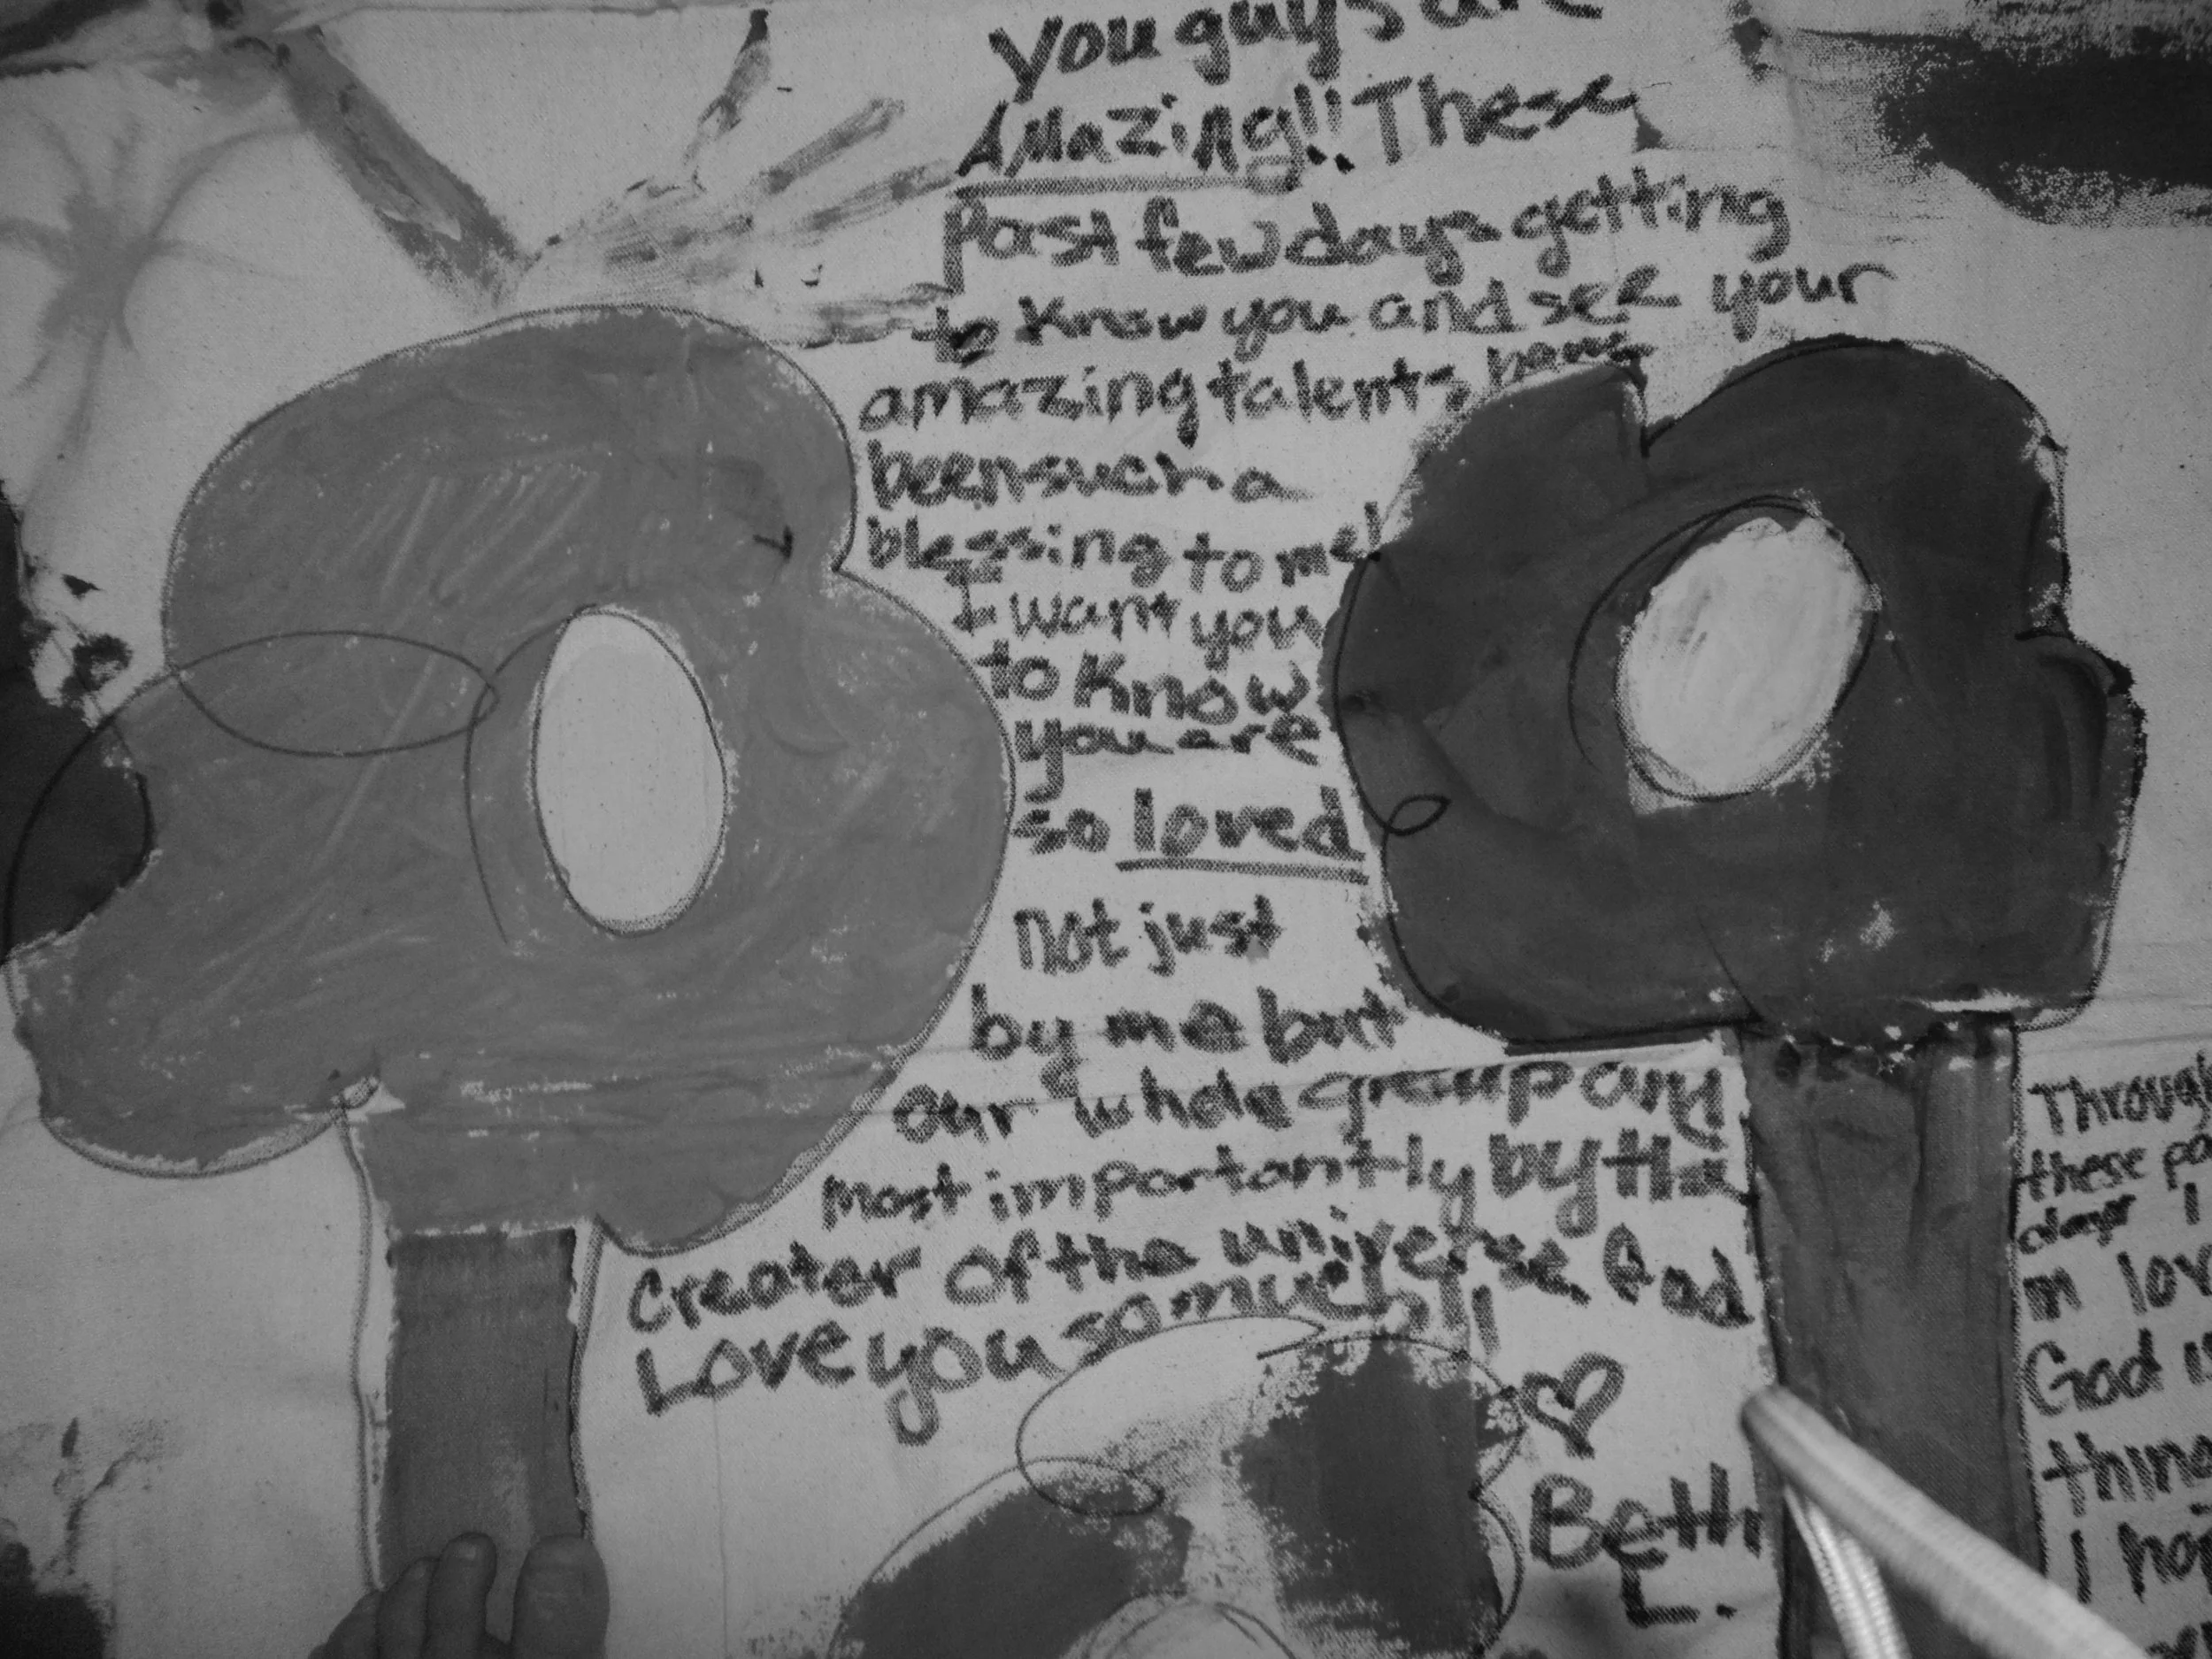 you guys are
Amazing!! These
Past few days getting
to Know you and see your
amazing talents, have
been such a
blessing to me!
I want you
to Know
you are
so loved
not just
by me but
our whole group and
most importantly by the
Creater of the universe. God
Love you so much!!!
Beth
L.
Through
these pa
days I
in lov
God
thing
I ho